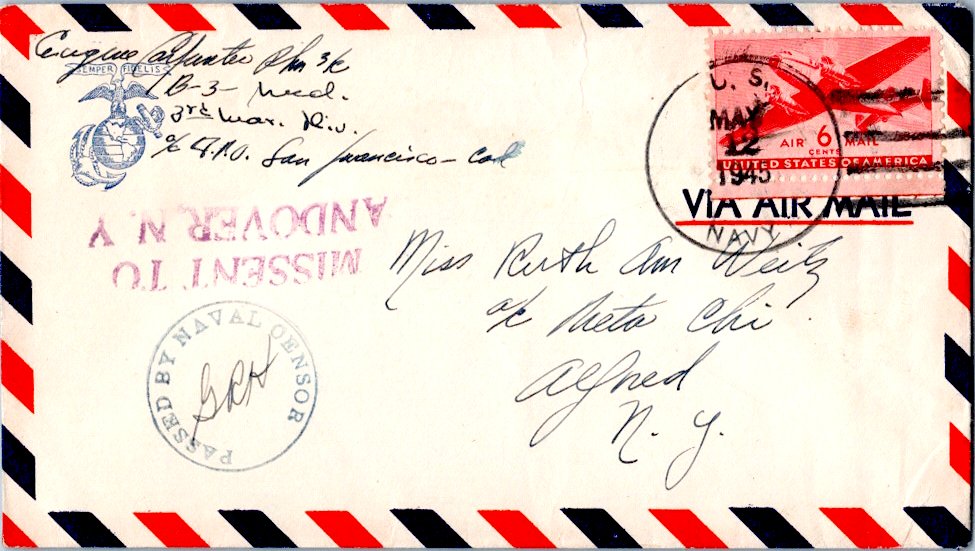 SEMPER FIDELIS
B-3- Med.
3rd Mar. Div.
c/o F.P.O. San Francisco - Cal
U. S.
MAY
12
1945
NAVY
AIR 6 MAIL
CENTS
UNITED STATES OF AMERICA
VIA AIR MAIL
MISSENT TO
ANDOVER, N. Y
PASSED BY NAVAL CENSOR
Miss Ruth Ann Weitz
c/o Theta Chi
Alfred
N. Y.